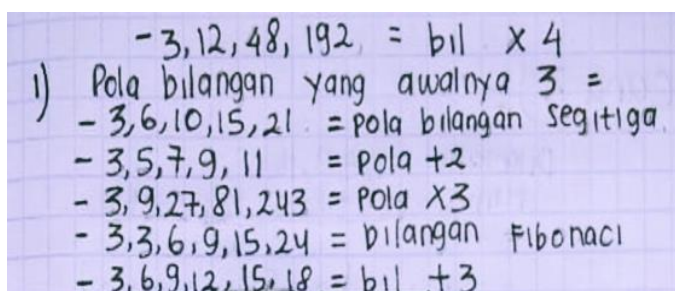 - 3, 12, 48, 192, = bil x 4
1) Pola bilangan yang awalnya 3 =
- 3, 6, 10, 15, 21 = pola bilangan segitiga.
- 3, 5, 7, 9, 11 = pola +2
- 3, 9, 27, 81, 243 = Pola x3
- 3, 3, 6, 9, 15, 24 = bilangan Fibonaci
- 3, 6, 9, 12, 15, 18 = bil +3